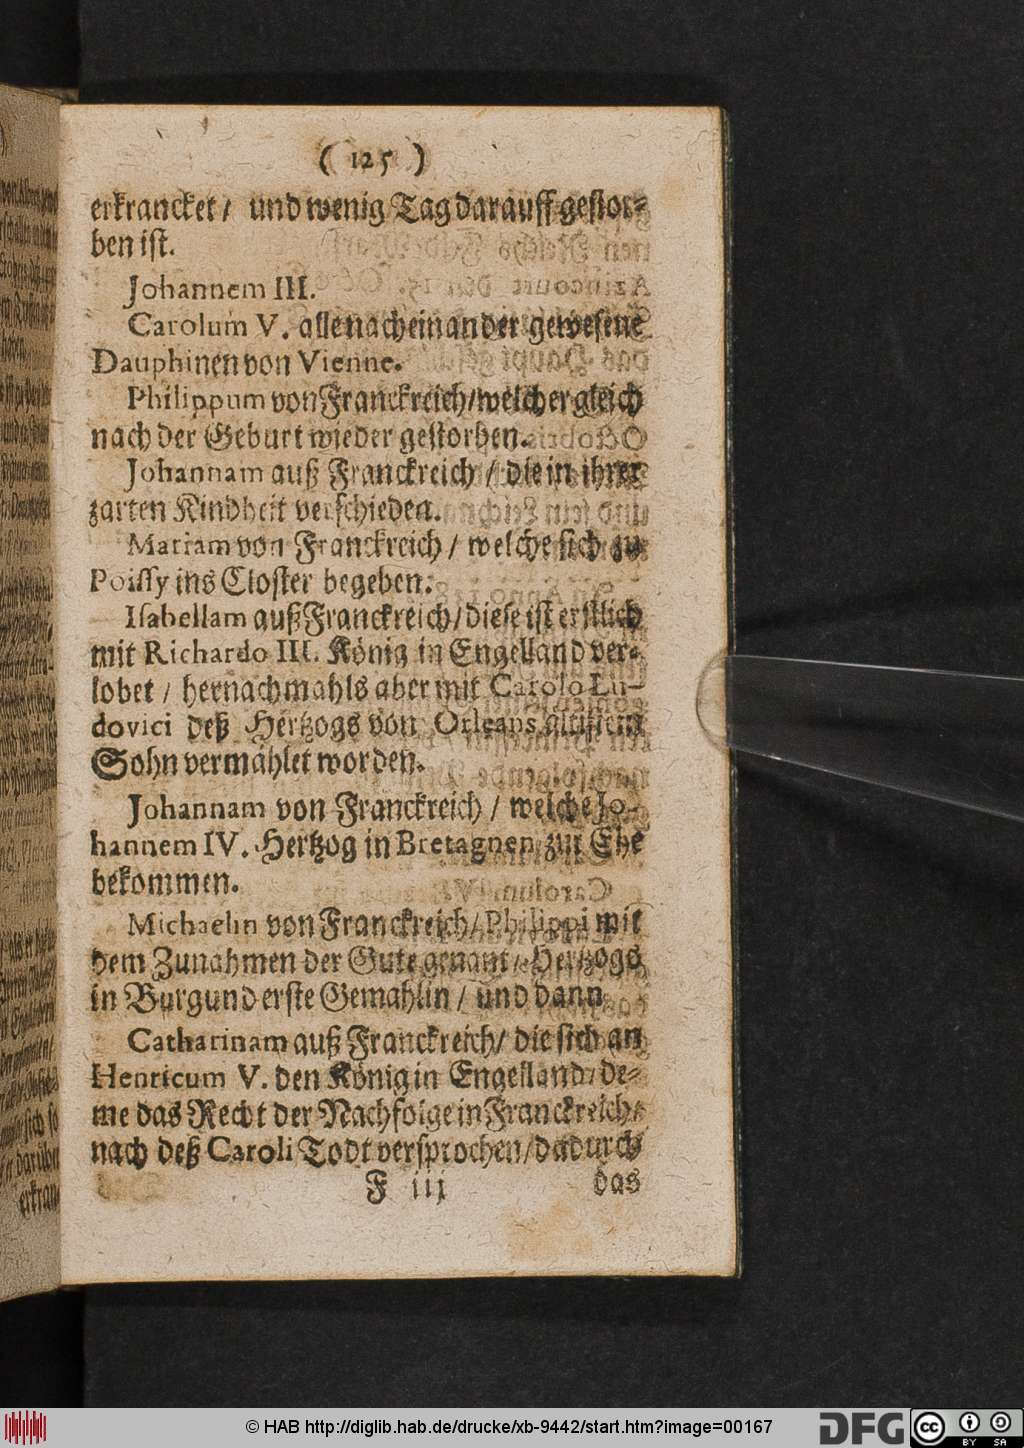 ( 125 )
erkrancket / und wenig Tag darauff gestor-
ben ist.
Johannem III.
Carolum V. alle nacheinander gewesene
Dauphinen von Vienne.
Philippum von Franckreich/welcher gleich
nach der Geburt wieder gestorben.
Johannam auß Franckreich / die in ihrer
zarten Kindheit verschieden.
Mariam von Franckreich / welche sich zu
Poissy ins Closter begeben.
Isabellam auß Franckreich/diese ist erstlich
mit Richardo III. König in Engelland ver-
lobet / hernachmahls aber mit Carolo Lu-
dovici deß Hertzogs von Orleans ältistem
Sohn vermählet worden.
Johannam von Franckreich / welche Jo-
hannem IV. Hertzog in Bretagnen zur Ehe
bekommen.
Michaelin von Franckreich/Philippi mit
dem Zunahmen der Gute genant / Hertzogs
in Burgund erste Gemahlin / und dann
Catharinam auß Franckreich/ die sich an
Henricum V. den König in Engelland/de-
me das Recht der Nachfolge in Franckreich/
nach deß Caroli Todt versprochen/dadurch
F iij das
© HAB http://diglib.hab.de/drucke/xb-9442/start.htm?image=00167
DFG
cc BY SA